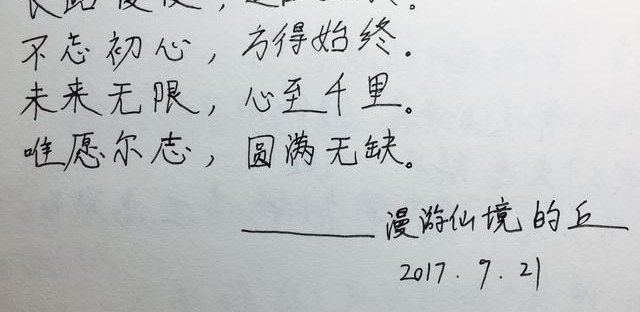 不忘初心，方得始终。
未来无限，心至千里。
唯愿尔志，圆满无缺。
———漫游仙境的丘
2017.9.21